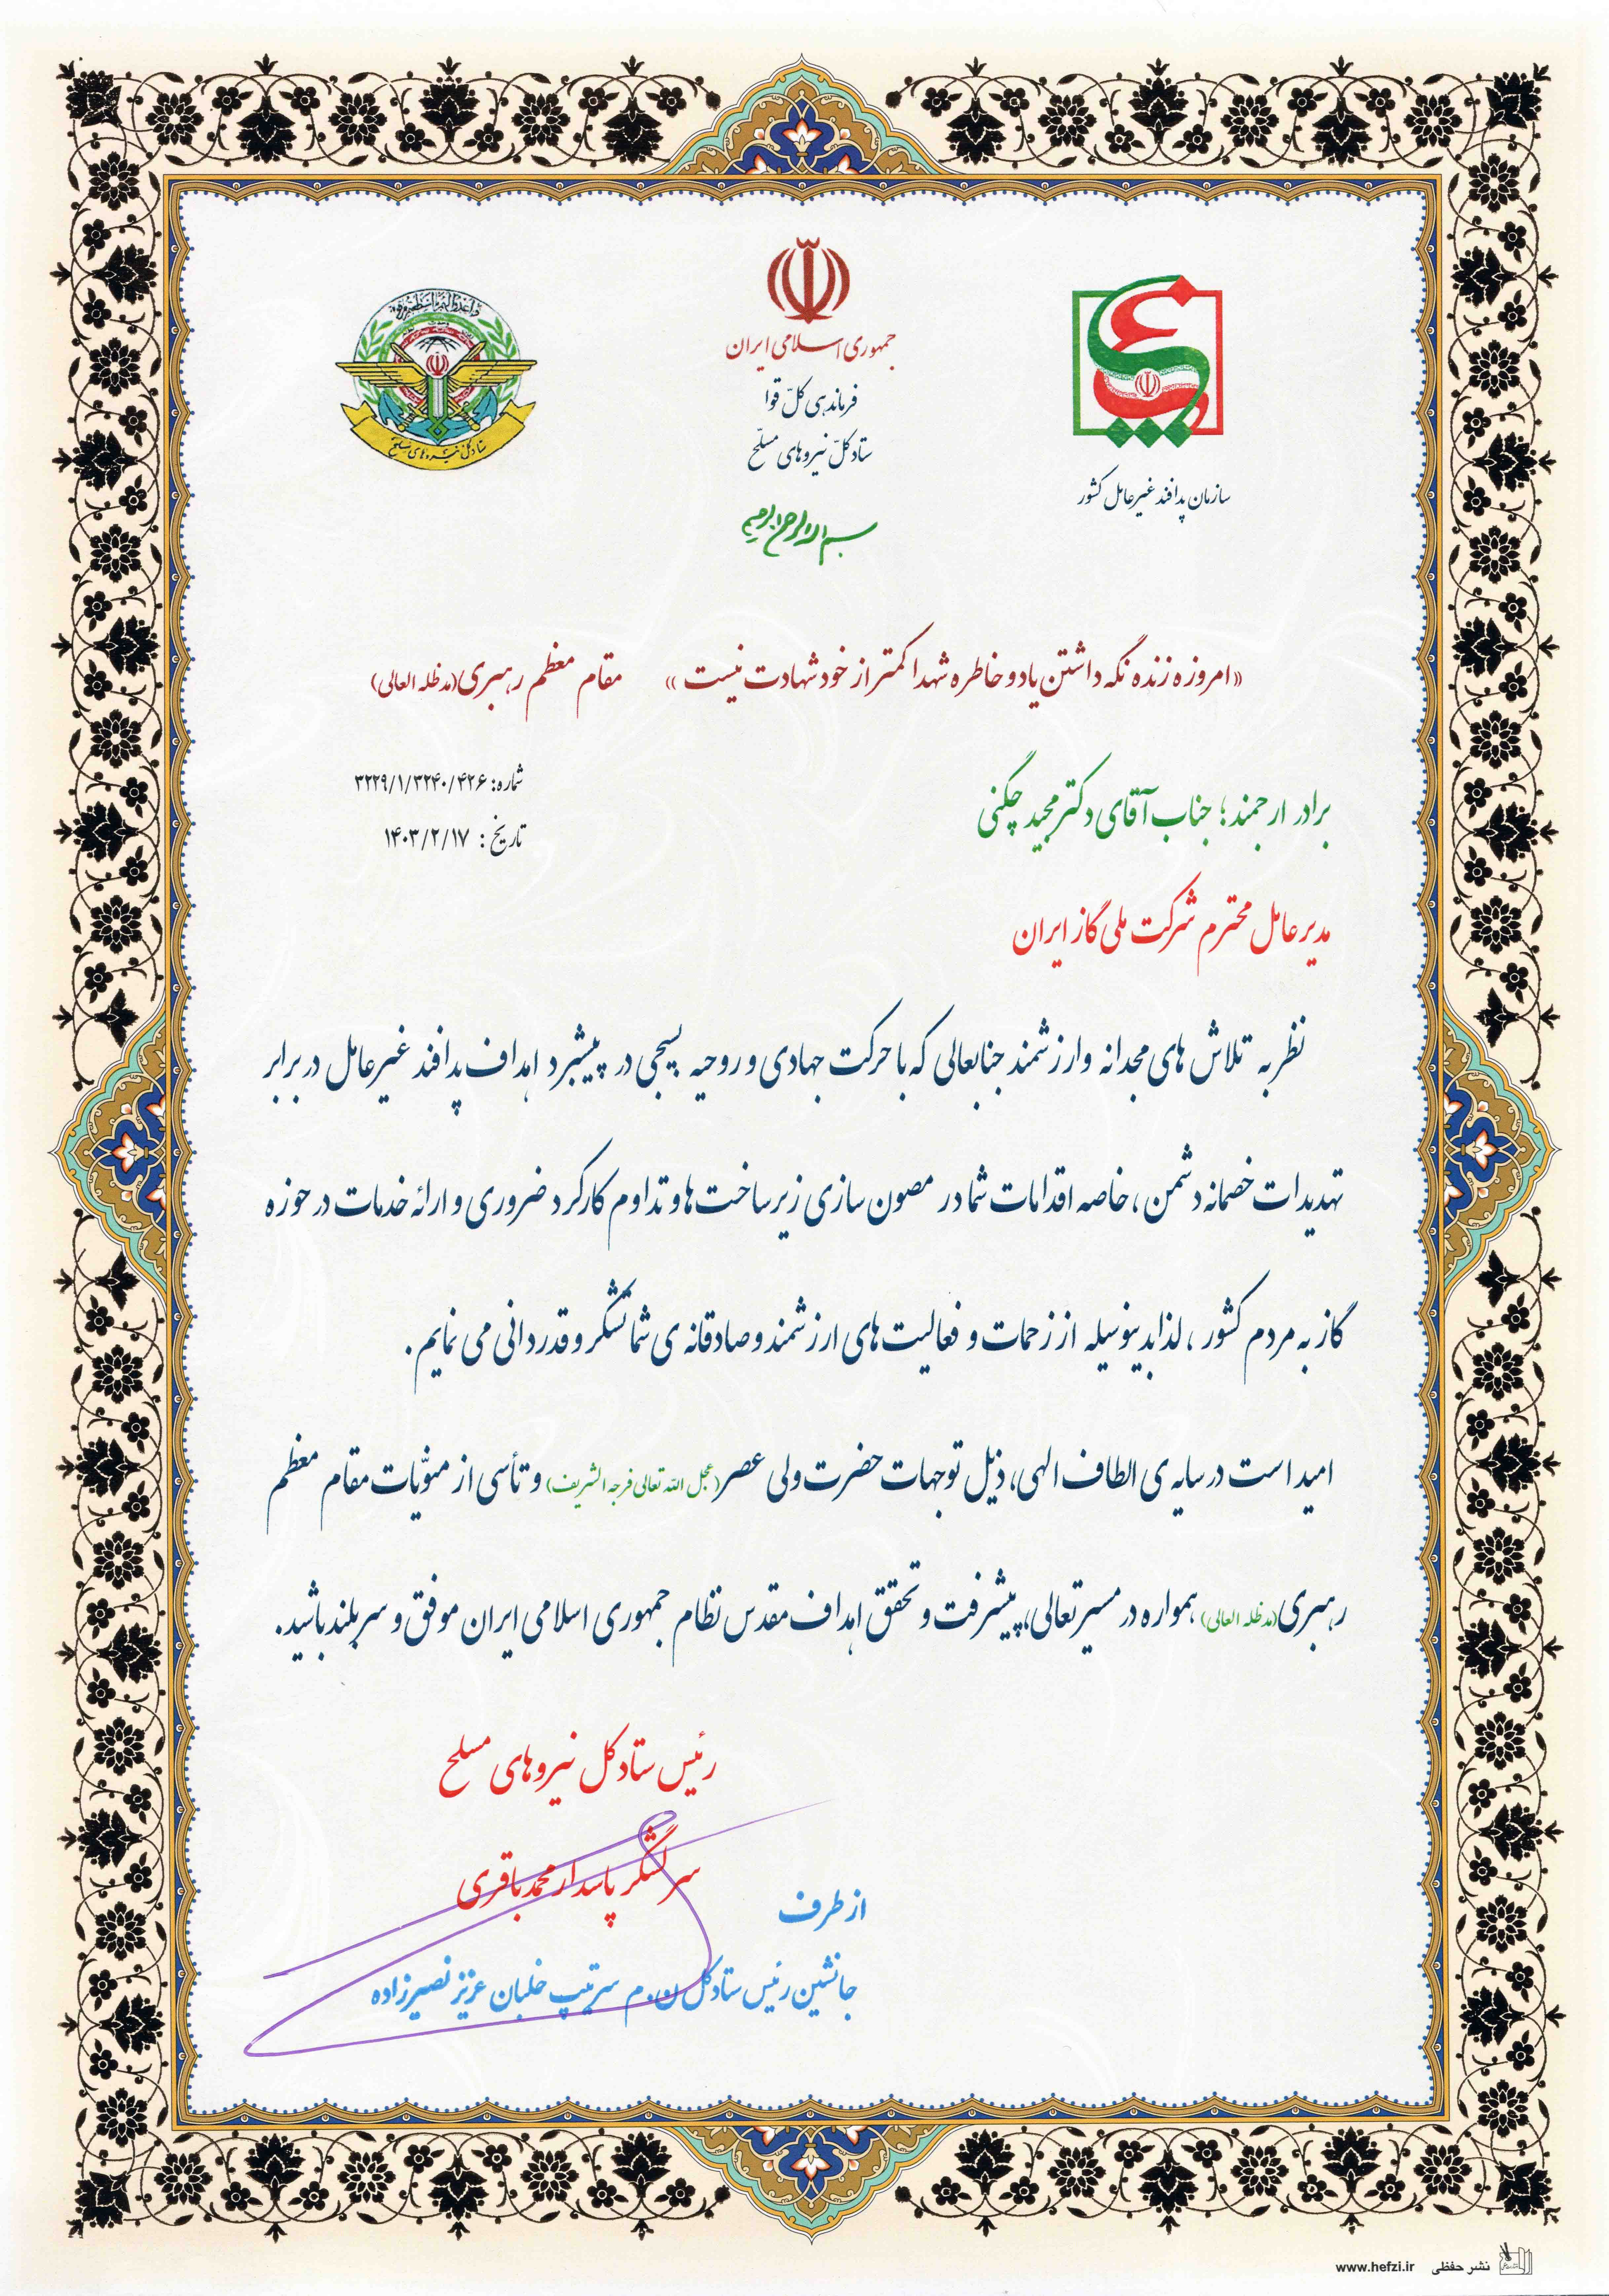 جمهوری اسلامی ایران
فرماندهی کلّ قوا
ستاد کلّ نیروهای مسلّح
سازمان پدافند غیرعامل کشور
ستاد کل نیروهای مسلح
بسم الله الرحمن الرحیم
«امروزه زنده نگه داشتن یاد و خاطره شهدا کمتر از خود شهادت نیست» مقام معظم رهبری (مدظله العالی)
شماره: ۳۲۲۹/۱/۳۲۴۰/۴۲۶
تاریخ: ۱۴۰۳/۲/۱۷
برادر ارجمند؛ جناب آقای دکتر مجید چگنی
مدیرعامل محترم شرکت ملی گاز ایران
نظر به تلاش های مجدانه و ارزشمند جنابعالی که با حرکت جهادی و روحیه بسیجی در پیشبرد اهداف پدافند غیرعامل در برابر
تهدیدات خصمانه دشمن، خاصه اقدامات شما در مصون سازی زیرساخت ها و تداوم کارکرد ضروری و ارائه خدمات در حوزه
گاز به مردم کشور، لذا بدینوسیله از زحمات و فعالیت های ارزشمند و صادقانه ی شما تشکر و قدردانی می نمایم.
امید است در سایه ی الطاف الهی، ذیل توجهات حضرت ولی عصر (عجل الله تعالی فرجه الشریف) و تأسی از منویّات مقام معظم
رهبری (مدظله العالی) همواره در مسیر تعالی، پیشرفت و تحقق اهداف مقدس نظام جمهوری اسلامی ایران موفق و سربلند باشید.
رئیس ستاد کل نیروهای مسلح
سرلشکر پاسدار محمد باقری
از طرف
جانشین رئیس ستاد کل ن.م سرتیپ خلبان عزیز نصیرزاده
نشر حفظی www.hefzi.ir